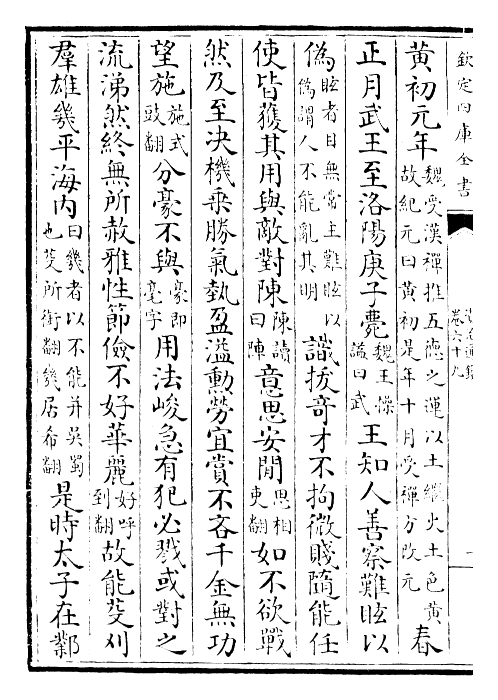 欽定四庫全書
卷六十九
一
黄初元年魏受漢禪推五徳之運以土繼火土色黄故紀元曰黄初是年十月受禪方改元春
正月武王至洛陽庚子薨魏王操諡曰武王知人善察難眩以
偽眩者目無常主難眩以偽謂人不能亂其明識拔奇才不拘微賤隨能任
使皆獲其用與敵對陳陳讀曰陣意思安閒思相吏翻如不欲戰
然及至决機乗勝氣埶盈溢勲勞宜賞不吝千金無功
望施施式豉翻分豪不與豪即毫字用法峻急有犯必戮或對之
流涕然終無所赦雅性節儉不好華麗好呼到翻故能芟刈
羣雄幾平海内曰幾者以不能并吴蜀也芟所銜翻幾居希翻是時太子在鄴